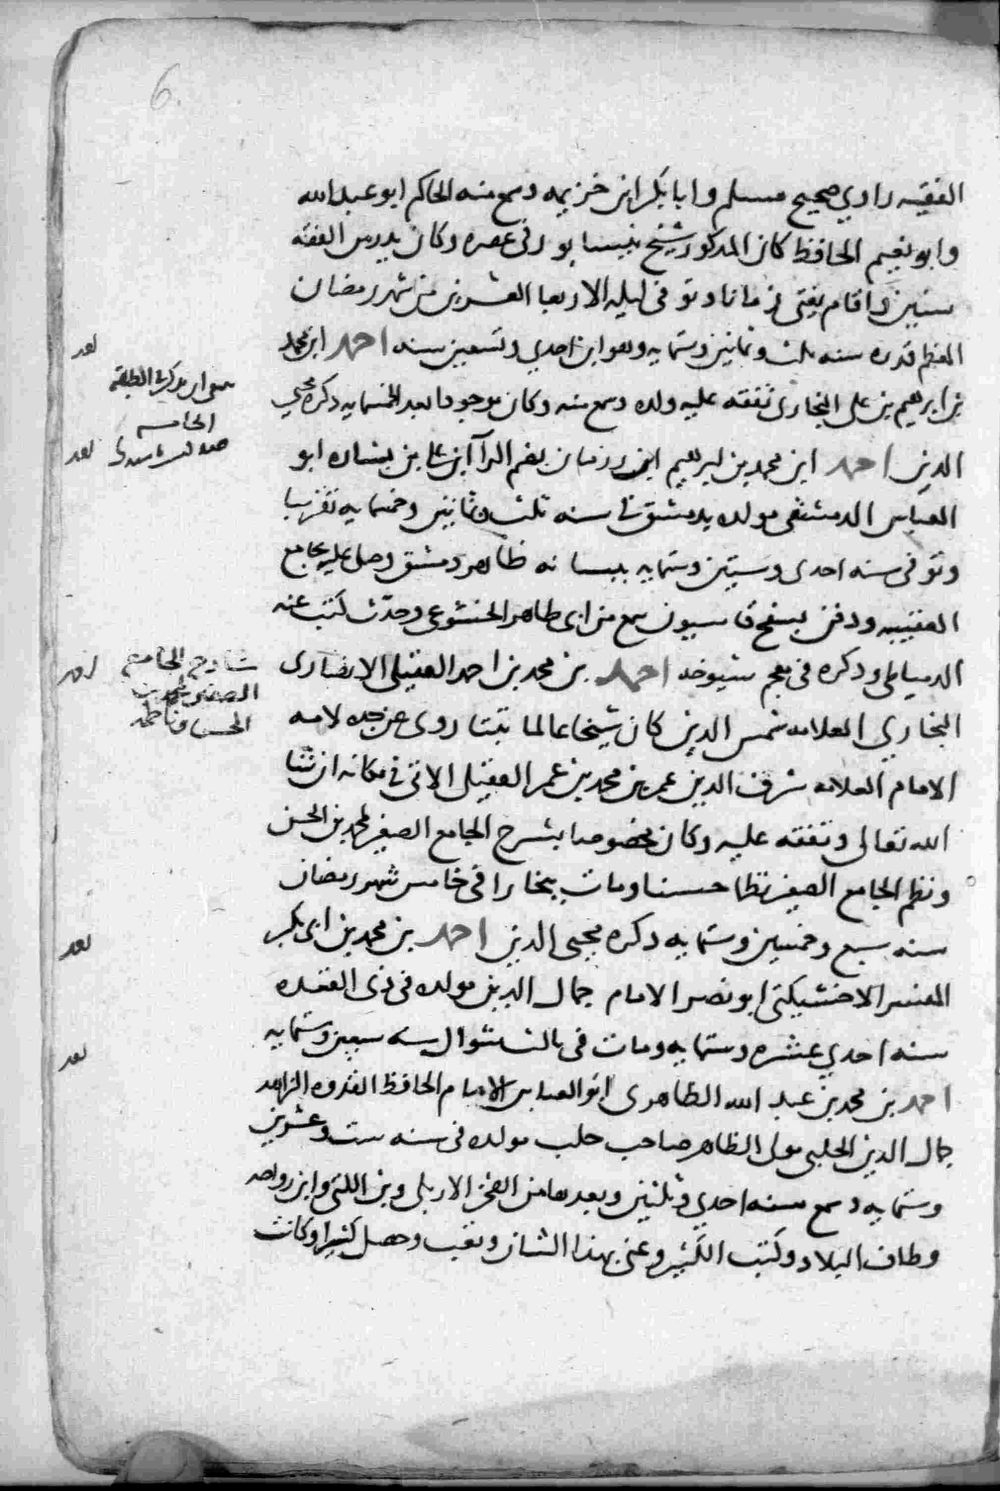 6
الفقيه راوي صحيح مسلم وابا بكر ابن خزيمه وسمع منه الحاكم ابو عبد الله
وابو نعيم الحافظ كان المذكور شيخ نيسابور في عصره وكان يدرس الفقه
سنين واقام يفتي زمانا وتوفي ليله الاربعا العشرين من شهر رمضان
المعظم قدره سنه ثلث وثمانين وستمايه وهو ابن احدي وتسعين سنه احمد ابن محمد
بن ابرهيم بن علي البخاري تفقه عليه ولده وسمع منه وكان موجودا بعد الخمسمايه ذكره محيي
الدين احمد ابن محمد بن ابرهيم ابن رزمان بضم الرآ ابن علي بن بشاره ابو
العباس الدمشقي مولده بدمشق في سنه ثلث وثمانين وخمسمايه تقريبا
وتوفي سنه احدي وستين وستمايه ببستانه ظاهر دمشق وصلي عليه بجامع
العقيبيه ودفن بسفح قاسيون سمع من ابي طاهر الخشوعي وحدث كتب عنه
الدمياطي وذكره في معجم شيوخه احمد بن محمد بن احمد العقيلي الانصاري
البخاري العلامه شمس الدين كان شيخا عالما ثبتا روي عن جده لامه
الامام العلامه شرف الدين عمر بن محمد بن عمر العقيلي الاتي في مكانه ان شا
الله تعالي وتفقه عليه وكان مخصوصا بشرح الجامع الصغير لمحمد بن الحسن
ونظم الجامع الصغير نظما حسنا ومات ببخارا في خامس شهر رمضان
سنه سبع وخمسين وستمايه ذكره محيي الدين احمد بن محمد بن ابي بكر
المفسر الاخسيكتي ابو نصر الامام جمال الدين مولده في ذي القعده
سنه احدي عشره وستمايه ومات في ثالث شوال سنه سبعين وستمايه
احمد بن محمد بن عبد الله الظاهري ابو العباس الامام الحافظ القدوه الزاهد
جمال الدين الحلبي مولي الظاهر صاحب حلب مولده في سنه ست وعشرين
وستمايه وسمع سنه احدي وثلثين وبعدها من الفخر الاربلي وبن اللتي وابن رواحه
وطاف البلاد وكتب الكثير وعني بهذا الشان وتعب وحصل كثيرا وكانت
الطبقه
الخامسه
شارح الجامع
الصغير لمحمد بن
الحسن وناظمه